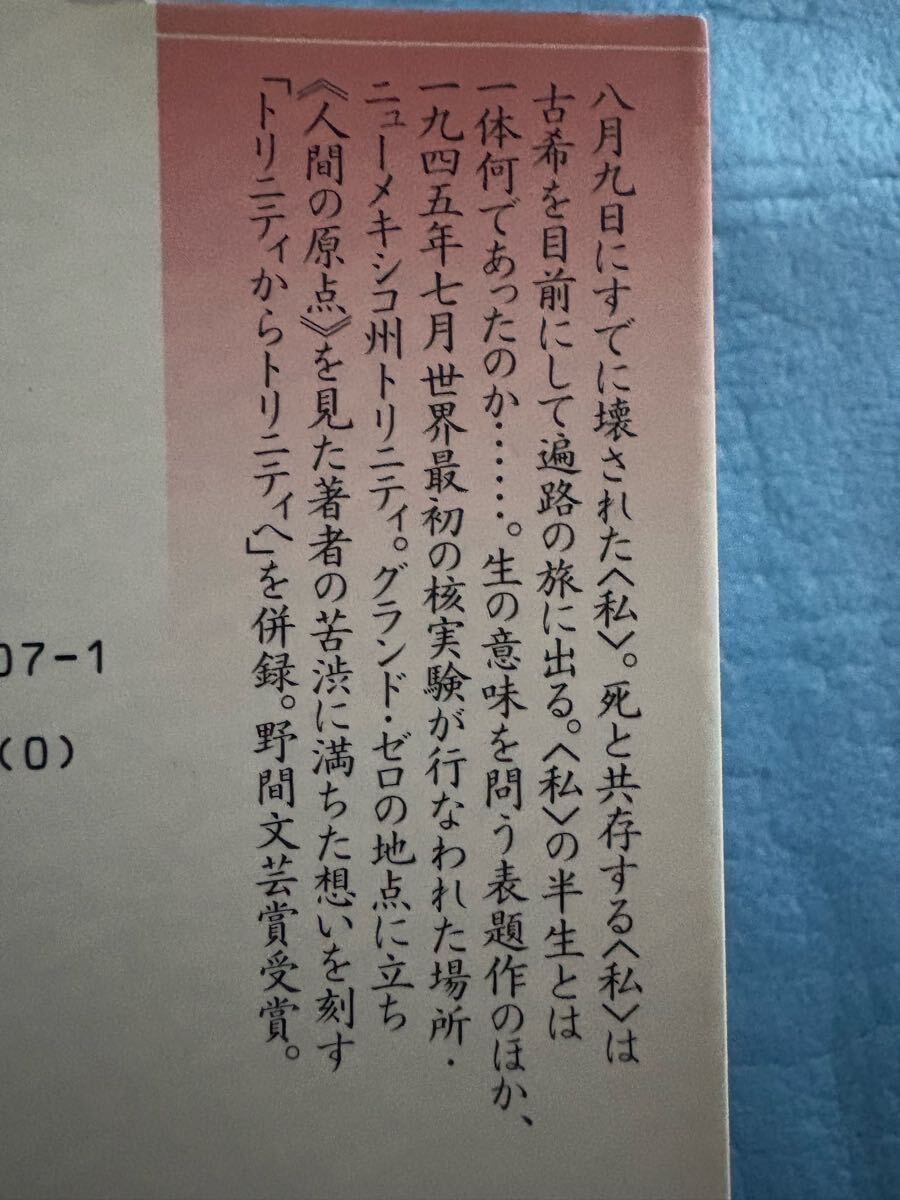 八月九日にすでに壊された〈私〉。死と共存する〈私〉は
古希を目前にして遍路の旅に出る。〈私〉の半生とは
一体何であったのか……。生の意味を問う表題作のほか、
一九四五年七月世界最初の核実験が行なわれた場所・
ニューメキシコ州トリニティ。グランド・ゼロの地点に立ち
《人間の原点》を見た著者の苦渋に満ちた想いを刻す
「トリニティからトリニティへ」を併録。野間文芸賞受賞。
07-1
(0)